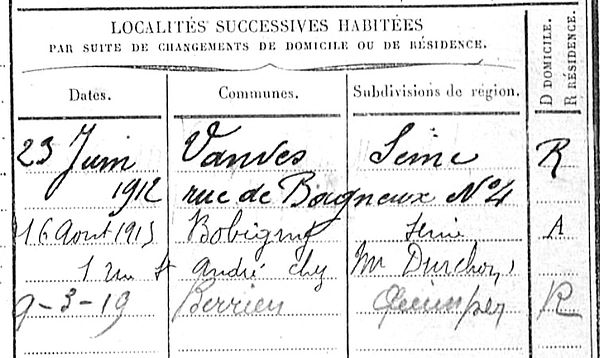 LOCALITÉS SUCCESSIVES HABITÉES
PAR SUITE DE CHANGEMENTS DE DOMICILE OU DE RÉSIDENCE.
D DOMICILE.
R RÉSIDENCE.
Dates. Communes. Subdivisions de région.
23 Juin Vanves Seine R
1912 rue de Bagneux No 4
16 Aout 1915 Bobigny Seine A
1 rue St André chez Mr
9-3-19 Berrien Quimper R